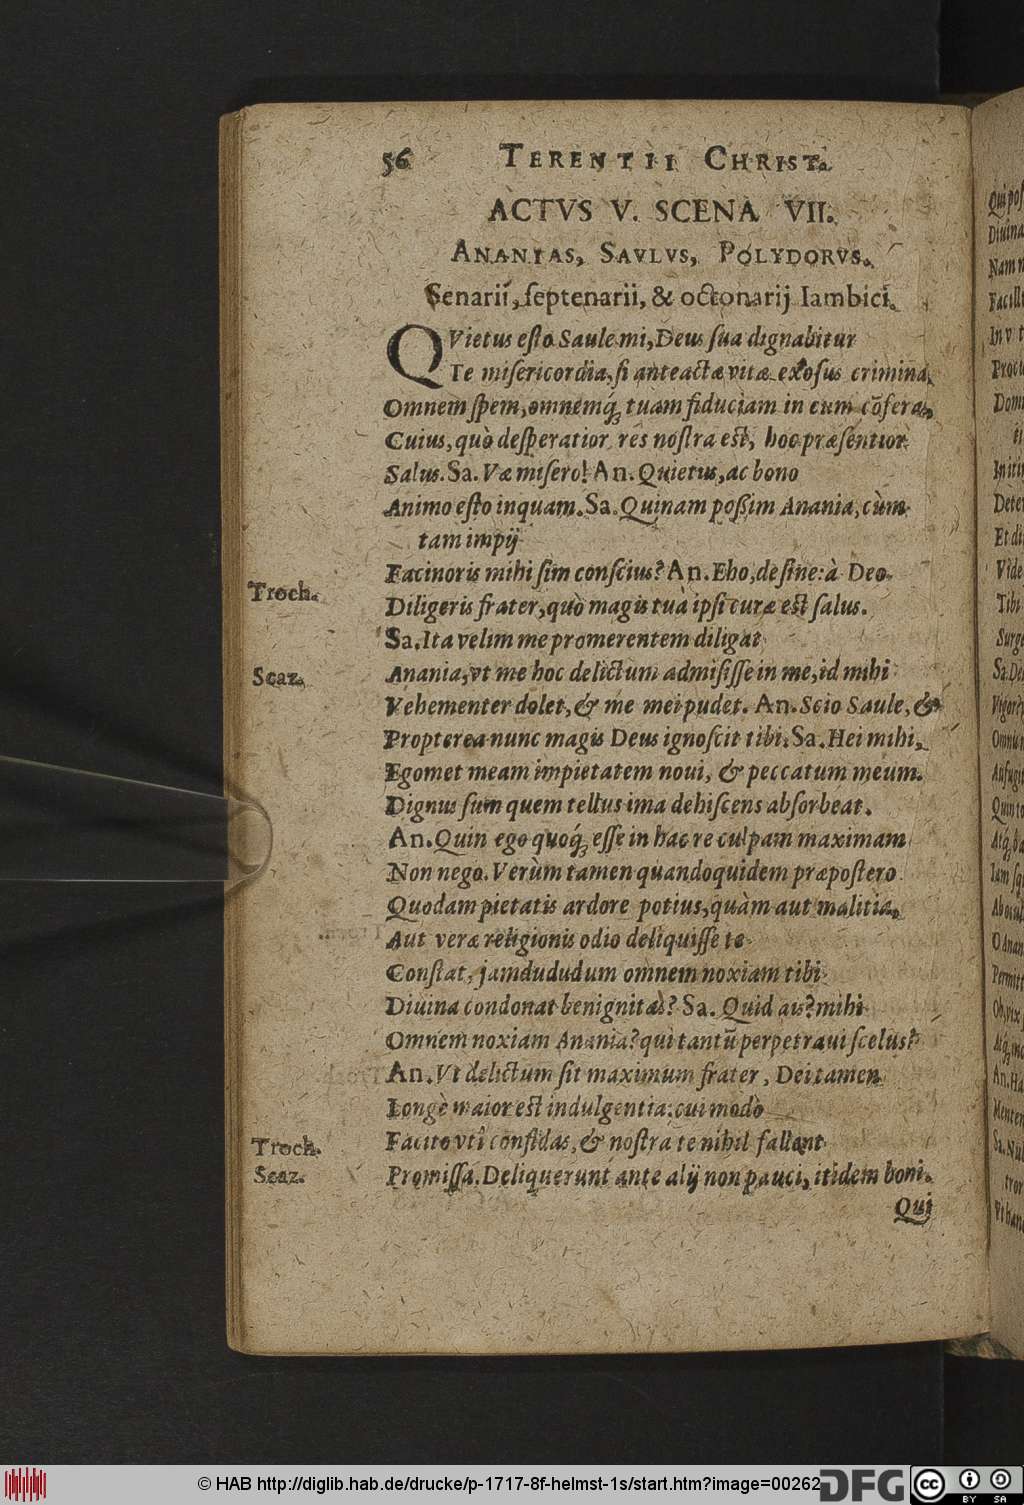 56 TERENTII CHRIST.
ACTVS V. SCENA VII.
ANANIAS, SAVLVS, POLYDORVS.
Senarii, septenarii, & octonarij Iambici.
QVietus esto Saule mi, Deus sua dignabitur
Te misericordia, si anteactæ vitæ exosus crimina,
Omnem spem, omnemq́; tuam fiduciam in eum cōferas,
Cuius, quò desperatior res nostra est, hoc præsentior
Salus. Sa. Væ misero! An. Quietus, ac bono
Animo esto inquam. Sa. Quinam poßim Anania, cùm
tam impij
Facinoris mihi sim conscius? An. Eho, desine: à Deo
Troch. Diligeris frater, quò magis tuà ipsi curæ est salus.
Sa. Ita velim me promerentem diligat
Scaz. Anania, vt me hoc delictum admisisse in me, id mihi
Vehementer dolet, & me mei pudet. An. Scio Saule, &
Propterea nunc magis Deus ignoscit tibi. Sa. Hei mihi,
Egomet meam impietatem noui, & peccatum meum.
Dignus sum quem tellus ima dehiscens absorbeat.
An. Quin ego quoq́; esse in hac re culpam maximam
Non nego. Verùm tamen quandoquidem præpostero
Quodam pietatis ardore potius, quàm aut malitia,
Aut veræ religionis odio deliquisse te
Constat, jamdududum omnem noxiam tibi
Diuina condonat benignitas? Sa. Quid ais? mihi
Omnem noxiam Anania? qui tantū perpetraui scelus?
An. Vt delictum sit maximum frater, Dei tamen
Longè maior est indulgentia: cui modò
Troch. Facito vti confidas, & nostra te nihil fallent
Scaz. Promissa. Deliquerunt ante alij non pauci, itidem boni.
Qui
© HAB http://diglib.hab.de/drucke/p-1717-8f-helmst-1s/start.htm?image=00262
DFG
cc BY SA